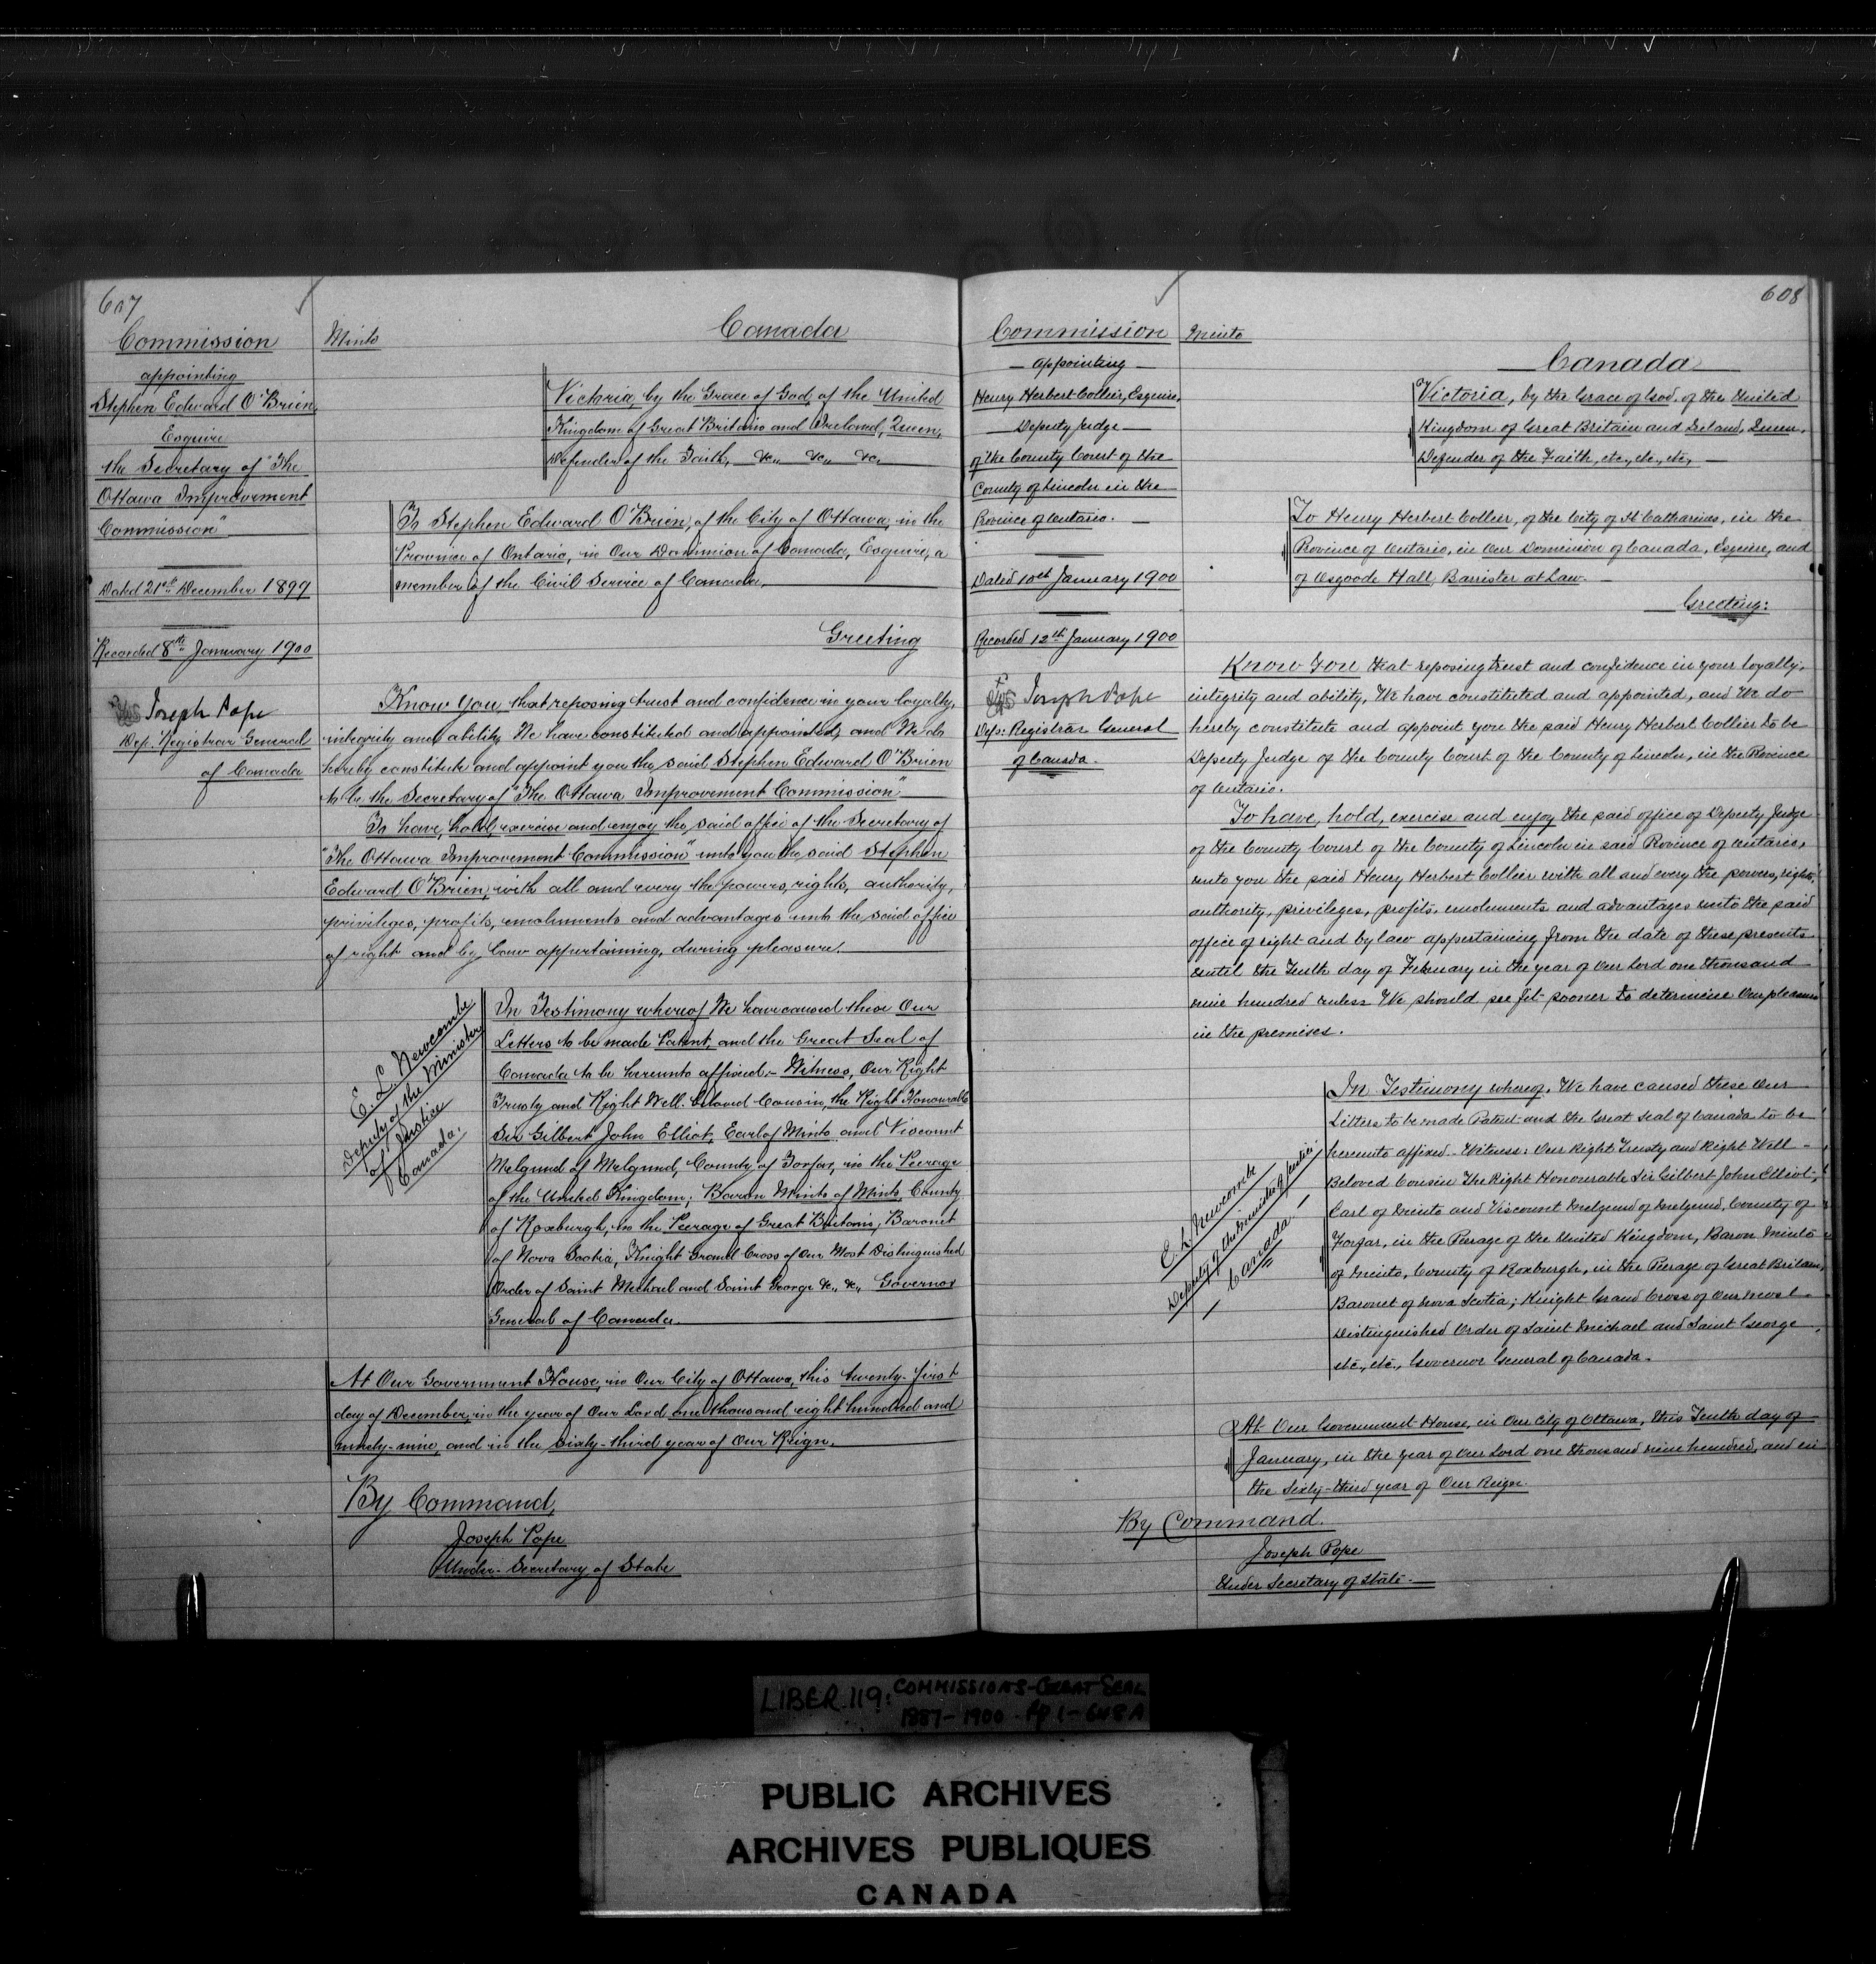 607
Commission
appointing
Stephen Edward O'Brien,
Esquire
the Secretary of "The
Ottawa Improvement
Commission"
Dated 21st December 1899
Recorded 8th January 1900
Joseph Pope
Dep. Registrar General
of Canada
Minto
Canada
Victoria, by the Grace of God, of the United
Kingdom of Great Britain and Ireland, Queen,
Defender of the Faith, &c., &c., &c.
To Stephen Edward O'Brien, of the City of Ottawa, in the
Province of Ontario, in Our Dominion of Canada, Esquire, a
member of the Civil Service of Canada,
Greeting
Know You, that reposing trust and confidence in your loyalty,
integrity and ability, We have constituted and appointed, and We do
hereby constitute and appoint you the said Stephen Edward O'Brien
to be the Secretary of "The Ottawa Improvement Commission"
To have, hold, exercise and enjoy the said office of the Secretary of
"The Ottawa Improvement Commission" unto you the said Stephen
Edward O'Brien, with all and every the powers, rights, authority,
privileges, profits, emoluments and advantages unto the said office
of right and by law appertaining, during pleasure.
E. L. Newcombe
Deputy of the Minister
of Justice
Canada.
In Testimony whereof We have caused these Our
Letters to be made Patent, and the Great Seal of
Canada to be hereunto affixed.- Witness, Our Right
Trusty and Right Well-beloved Cousin, the Right Honourable
Sir Gilbert John Elliot, Earl of Minto and Viscount
Melgund of Melgund, County of Forfar, in the Peerage
of the United Kingdom; Baron Minto of Minto, County
of Roxburgh, in the Peerage of Great Britain, Baronet
of Nova Scotia, Knight Grand Cross of Our Most Distinguished
Order of Saint Michael and Saint George &c., &c., Governor
General of Canada.
At Our Government House, in Our City of Ottawa, this twenty-first
day of December, in the year of Our Lord one thousand eight hundred and
ninety-nine, and in the sixty-third year of Our Reign.
By Command,
Joseph Pope
Under-Secretary of State
608
Commission
appointing
Henry Herbert Collier, Esquire,
Deputy Judge
of the County Court of the
County of Lincoln in the
Province of Ontario.
Dated 10th January 1900
Recorded 12th January 1900
Joseph Pope
Dep: Registrar General
of Canada.
Minto
Canada
Victoria, by the Grace of God, of the United
Kingdom of Great Britain and Ireland, Queen,
Defender of the Faith, etc., etc., etc,
To Henry Herbert Collier, of the City of St Catharines, in the
Province of Ontario, in Our Dominion of Canada, Esquire, and
of Osgoode Hall, Barrister at Law.
Greeting:
Know You that reposing trust and confidence in your loyalty,
integrity and ability, We have constituted and appointed, and We do
hereby constitute and appoint you the said Henry Herbert Collier to be
Deputy Judge of the County Court of the County of Lincoln, in the Province
of Ontario.
To have, hold, exercise and enjoy the said office of Deputy Judge
of the County Court of the County of Lincoln in said Province of Ontario,
unto you the said Henry Herbert Collier with all and every the powers, rights,
authority, privileges, profits, emoluments and advantages unto the said
office of right and by law appertaining from the date of these presents
until the Tenth day of February in the year of Our Lord one thousand
nine hundred unless We should see fit sooner to determine Our pleasure
in the premises.
E. L. Newcombe
Deputy of the Minister of Justice
Canada
In Testimony whereof, We have caused these Our
Letters to be made Patent and the Great Seal of Canada to be
hereunto affixed. Witness: Our Right Trusty and Right Well-
Beloved Cousin The Right Honourable Sir Gilbert John Elliot,
Earl of Minto and Viscount Melgund of Melgund, County of
Forfar, in the Peerage of the United Kingdom, Baron Minto
of Minto, County of Roxburgh, in the Peerage of Great Britain,
Baronet of Nova Scotia; Knight Grand Cross of Our Most
Distinguished Order of Saint Michael and Saint George
etc., etc., Governor General of Canada.
At Our Government House, in Our City of Ottawa, this Tenth day of
January, in the year of Our Lord one thousand nine hundred, and in
the Sixty-third year of Our Reign.
By Command.
Joseph Pope
Under Secretary of State.
LIBER.119: COMMISSIONS-GREAT SEAL
1887-1900 - Pp 1-648A
PUBLIC ARCHIVES
ARCHIVES PUBLIQUES
CANADA